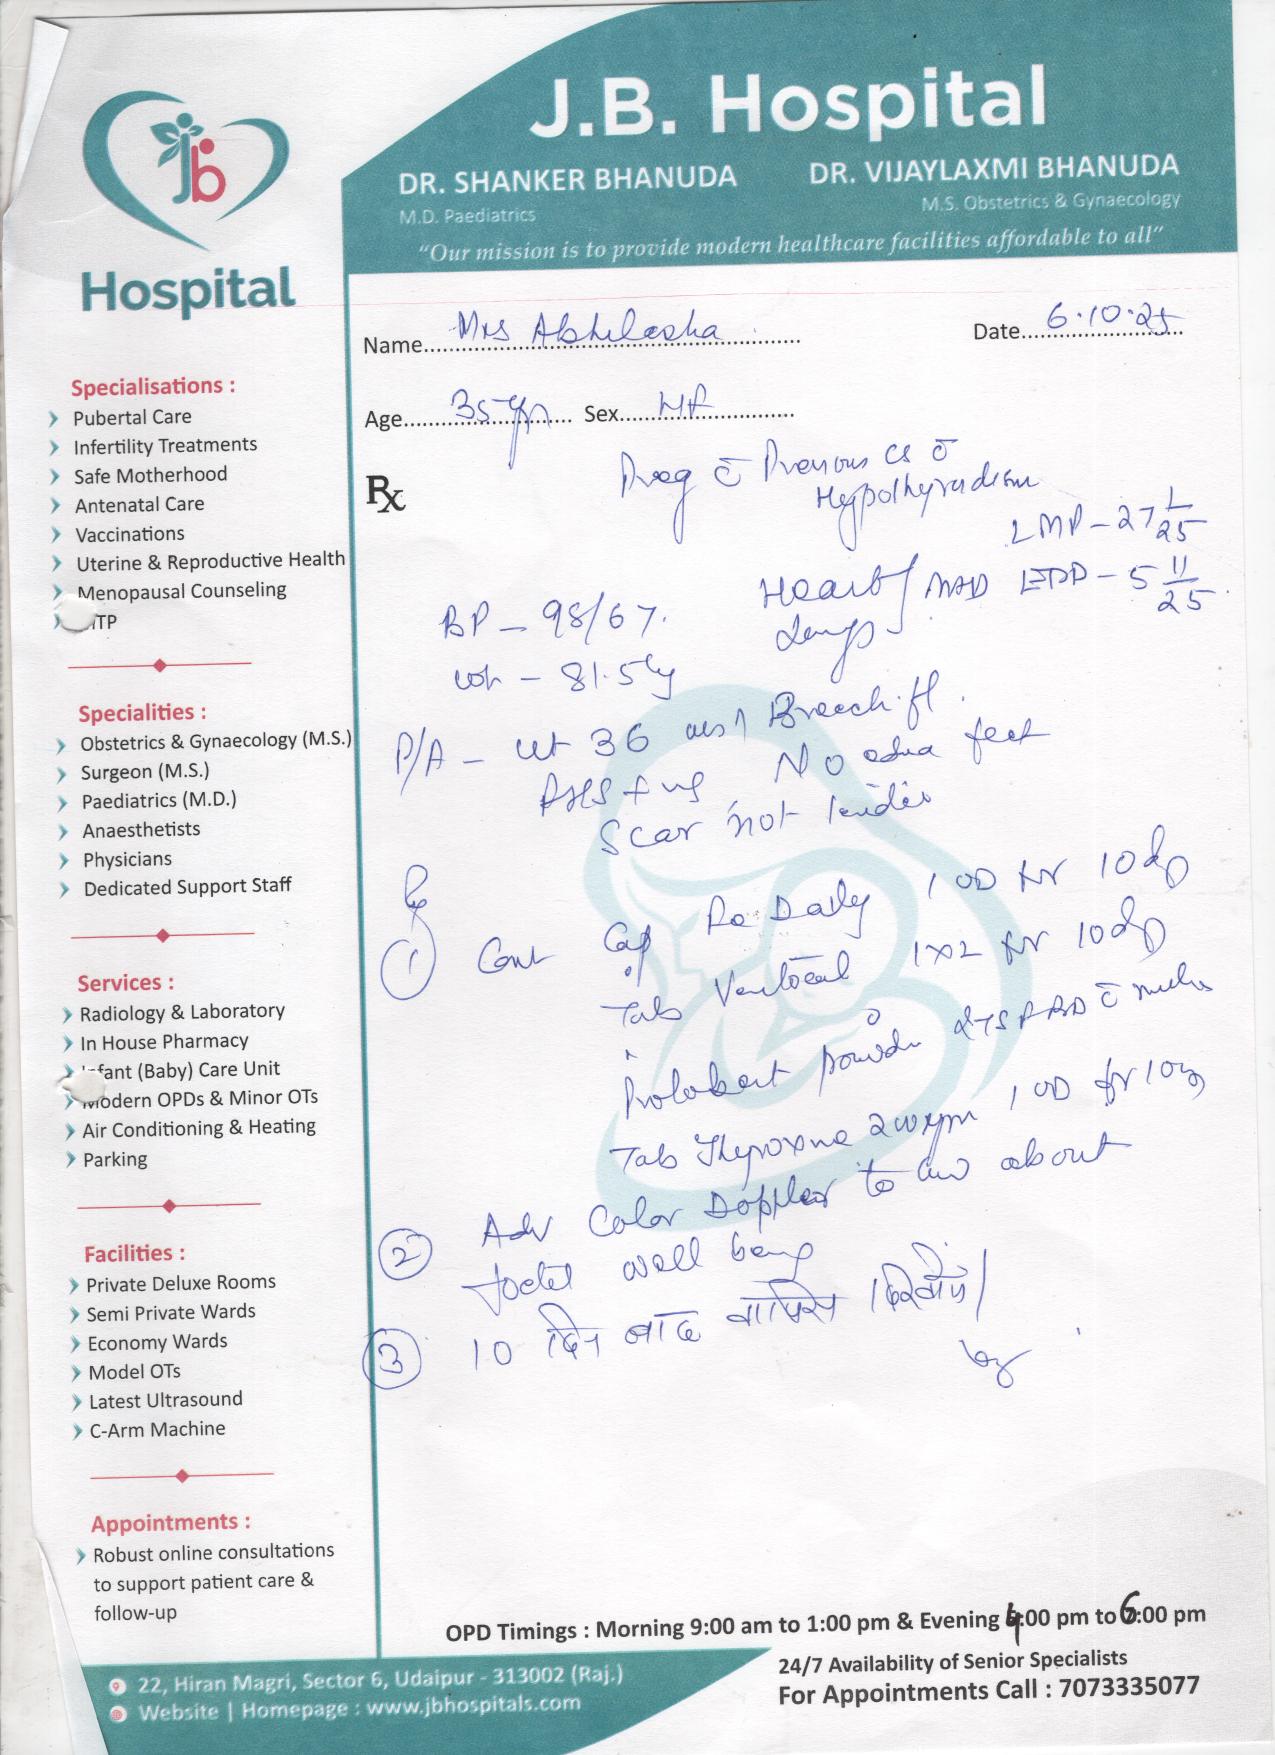 J.B. Hospital
DR. SHANKER BHANUDA
M.D. Paediatrics
DR. VIJAYLAXMI BHANUDA
M.S. Obstetrics & Gynaecology
"Our mission is to provide modern healthcare facilities affordable to all"
jb
Hospital
Name Mrs Abhilasha
Date 6.10.25
Age 35 yr Sex MF
Rx
Preg c̄ Previous CS c̄
Hypothyroidism
LMP - 27 1/25
Heart / NAD EDD - 5 11/25
Lungs
BP - 98/67.
wt - 81.5 kg
P/A - ut 36 Breech. fl.
No edma feet
Scar not tender
Rx
① Cont Cap Daily 1 OD for 10 dys
Tab 1x2 for 10 dys
powder 2TSF BD c̄ milk
Tab Thyroxine 1 OD for
② Adv Color Doppler to about
foetal well being
③ 10 दिन बाद वापिस दिखायें।
Specialisations :
Pubertal Care
Infertility Treatments
Safe Motherhood
Antenatal Care
Vaccinations
Uterine & Reproductive Health
Menopausal Counseling
TP
Specialities :
Obstetrics & Gynaecology (M.S.)
Surgeon (M.S.)
Paediatrics (M.D.)
Anaesthetists
Physicians
Dedicated Support Staff
Services :
Radiology & Laboratory
In House Pharmacy
Infant (Baby) Care Unit
Modern OPDs & Minor OTs
Air Conditioning & Heating
Parking
Facilities :
Private Deluxe Rooms
Semi Private Wards
Economy Wards
Model OTs
Latest Ultrasound
C-Arm Machine
Appointments :
Robust online consultations
to support patient care &
follow-up
OPD Timings : Morning 9:00 am to 1:00 pm & Evening 4:00 pm to 6:00 pm
24/7 Availability of Senior Specialists
For Appointments Call : 7073335077
22, Hiran Magri, Sector 6, Udaipur - 313002 (Raj.)
Website | Homepage : www.jbhospitals.com